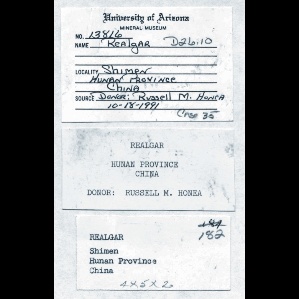 University of Arizona
MINERAL MUSEUM
NO. 13816
NAME Realgar D26:10
LOCALITY Shimen
Hunan Province
China
SOURCE Donor: Russell M. Honea
10-18-1991
Case 35
REALGAR
HUNAN PROVINCE
CHINA
DONOR: RUSSELL M. HONEA
182
REALGAR
Shimen
Hunan Province
China
4x5x2